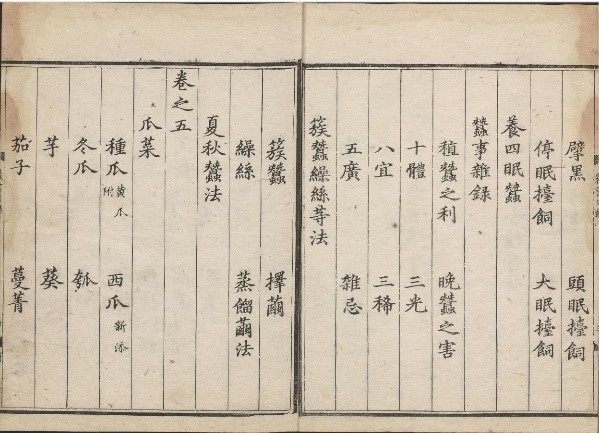 擘黑　頭眠擡飼
停眠擡飼　大眠擡飼
養四眠蠶
蠶事雜録
稙蠶之利　晚蠶之害
十體　三光
八宜　三稀
五廣　雜忌
簇蠶繰絲䓁法
簇蠶　擇繭
繰絲　蒸餾繭法
夏秋蠶法
卷之五
瓜菜
種瓜黄瓜附　西瓜新添
冬瓜　瓠
芋　葵
茄子　蔓菁